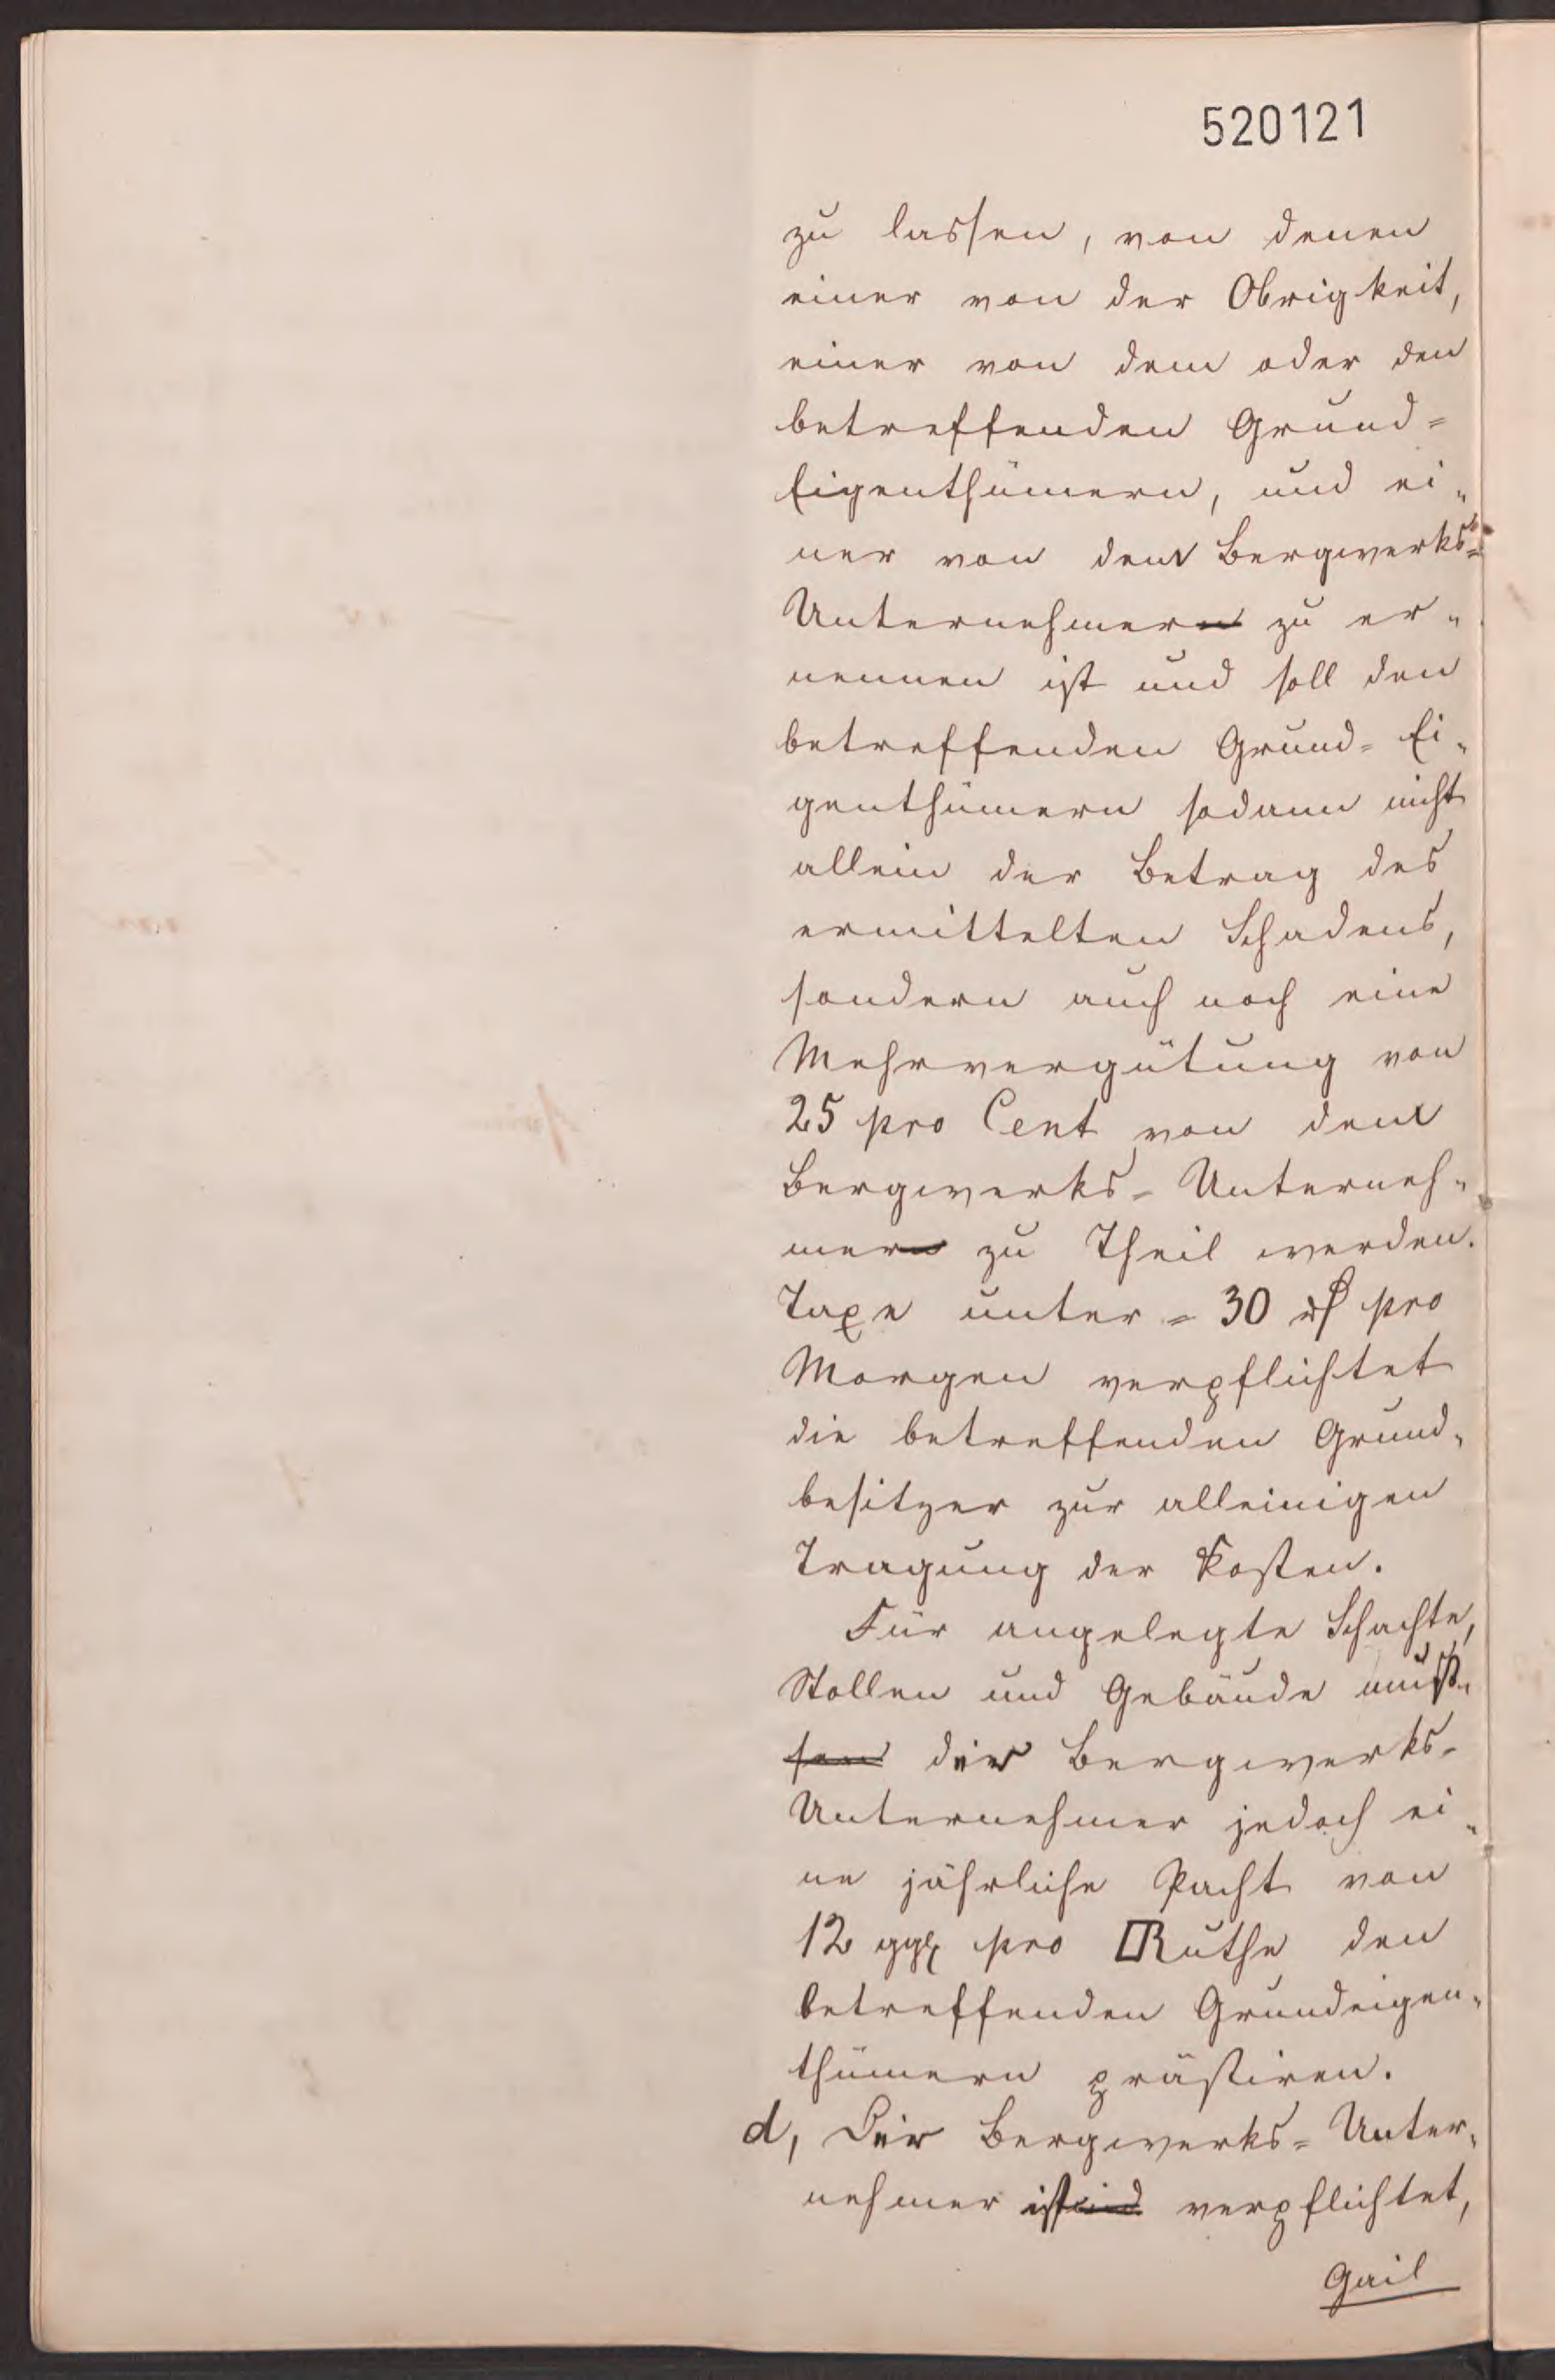 520121
zu lassen, von denen
einer von der Obrigkeit,
einer von dem oder den
betreffenden Grund=
Eigenthümern, und ei„
ner von dem Bergwerks=
Unternehmern zu er„
nennen ist und soll den
betreffenden Grund= Ei„
genthümern sodann nicht
allein der Betrag des
ermittelten Schadens,
sondern auch noch eine
Mehrvergütung von
25 pro Cent von dem
Bergwerks= Unterneh„
mern zu Theil werden.
Taxe unter = 30 rℓ pro
Morgen verpflichtet
die betreffenden Grund„
besitzer zur alleinigen
Tragung der Kosten.
Für angelegte Schachte,
Stollen und Gebäude muß„
sen der Bergwerks=
Unternehmer jedoch ei„
ne jährliche Pacht von
12 ggr pro □Ruthe den
betreffenden Grundeigen„
thümern prästiren.
d, Der Bergwerks= Unter„
nehmer ist verpflichtet,
Gail